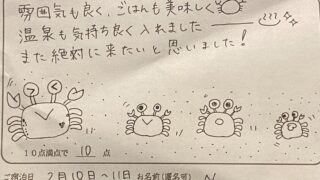 雰囲気も良く、ごはんも美味しく
温泉も気持ち良く入れました
また絶対に来たいと思いました!
10点満点で 10 点
ご宿泊日 2月10日〜11日 お名前(匿名可) N